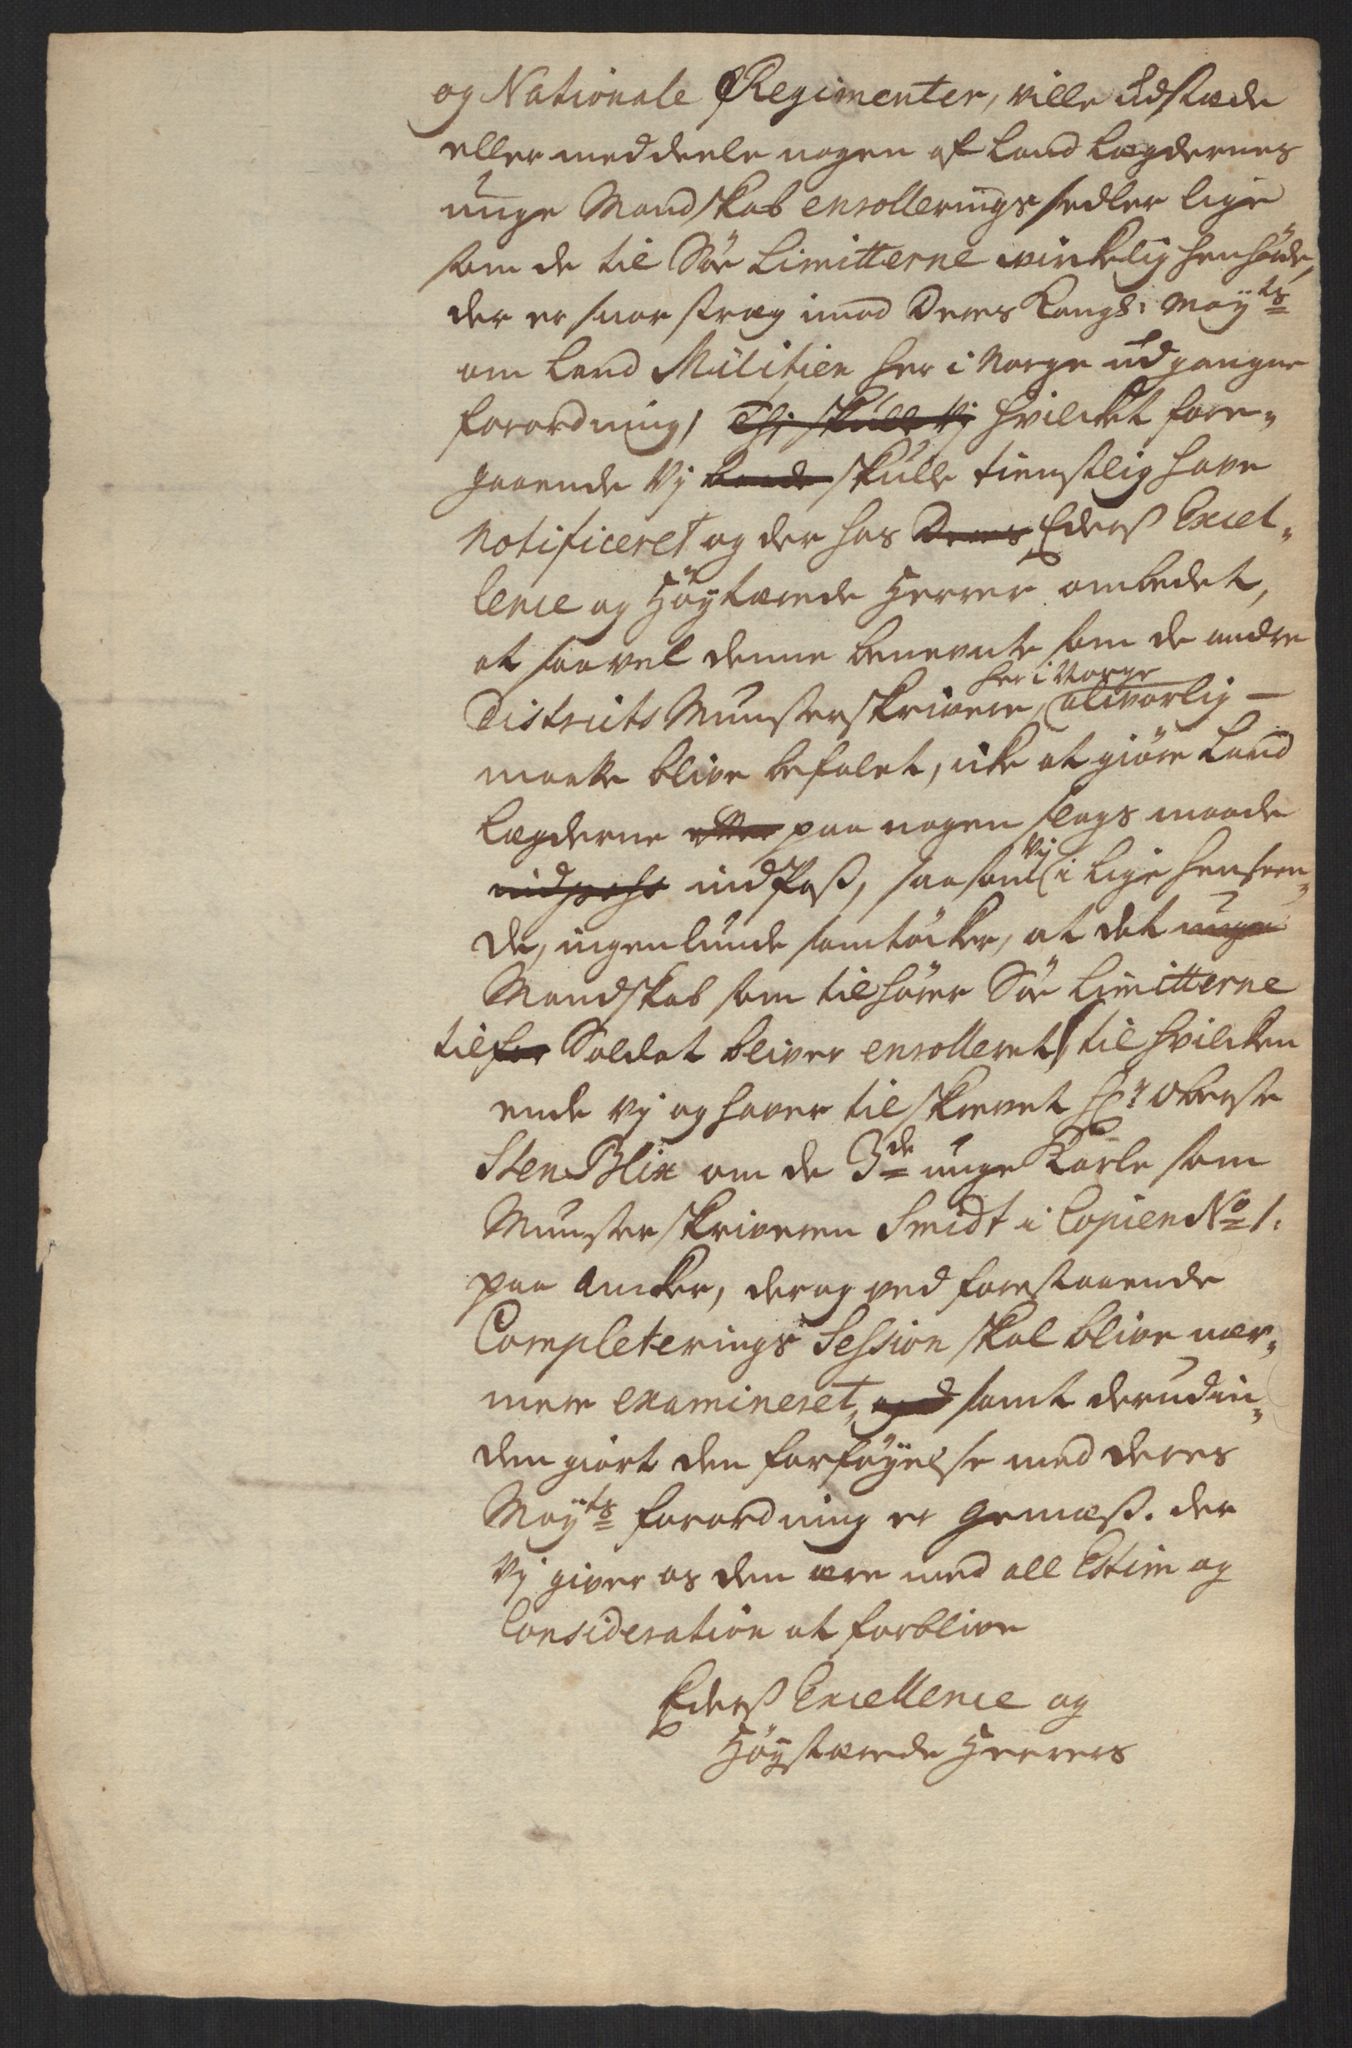 og Nationale Regimenter, ville udstæde
eller meddeele nogen af Land Lægdernes
unge Mandskab enrollerings sedler lige
som de til Söe Limitterne virkelig henhörde,
der er snor stræg imod Deres Kongl: May<sup>ts</sup>
om Land Militien her i Norge udgangne
forordning, Thj skulle Vj hvilcket fore-
gaaende Vj baade skulle tienstlig have
Notificeret og der hos Deres Eders Excel-
lence og Höytærede Herrer ombedet,
at saavel denne benevnte som de andre
her i Norge
Districts Munsterskrivere, alvorlig -
maatte blive befalet, icke at giöre Land
Lægderne efter paa nogen slags maade
indPaß, saasom Vj i lige henseen-
de, ingenlunde samtöcker, at det unge
Mandskab som tilhörer Söe Limitterne
til for Soldat bliver enrolleret, til hvilcken
ende Vj og haver tilskrevet Hr Oberste
Sten Blix om de 3<sup>de</sup> unge Karle som
Munsterskriveren Smidt i Copien No 1.
paa Ancker, der og ved forestaaende
Completerings Session skal blive nær-
mere examineret, og samt derudin-
den giort den forföyelse med deres
May<sup>ts</sup> forordning er gemæß. der
Vj giver os den ære med all Estim og
Consideration at forblive
Eders Excellence og
Höystærede Herrers